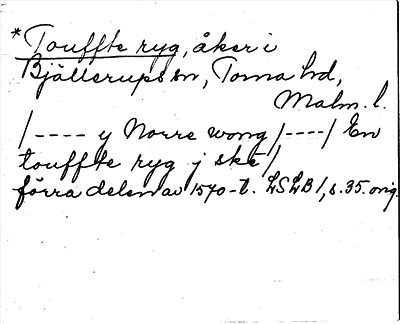 *Touffte ryg, åker i
Bjällerups sn, Torna hd,
Malm. l.
/---- y Norre wong /----/ En
touffte ryg j ske /
förra delen av 1570-t. LSLB 1, s. 35. orig.